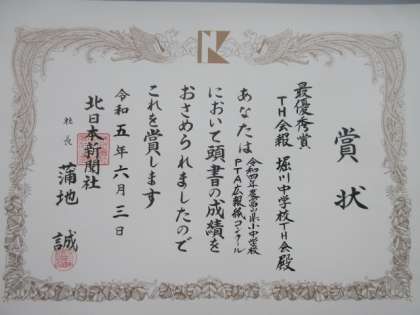 賞状
最優秀賞
TH会報 堀川中学校TH会殿
あなたは令和四年度富山県小中学校
PTA広報紙コンクール
において頭書の成績を
おさめられましたので
これを賞します
令和五年六月三日
北日本新聞社
社長 蒲地 誠